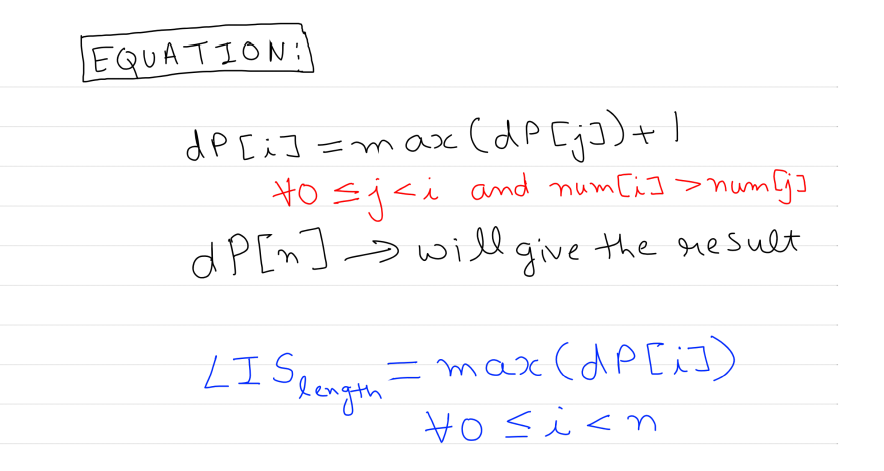 EQUATION:
dP[i] = max(dP[j]) + 1
∀0 ≤ j < i and num[i] > num[j]
dP[n] → will give the result
LIS length = max(dP[i])
∀0 ≤ i < n